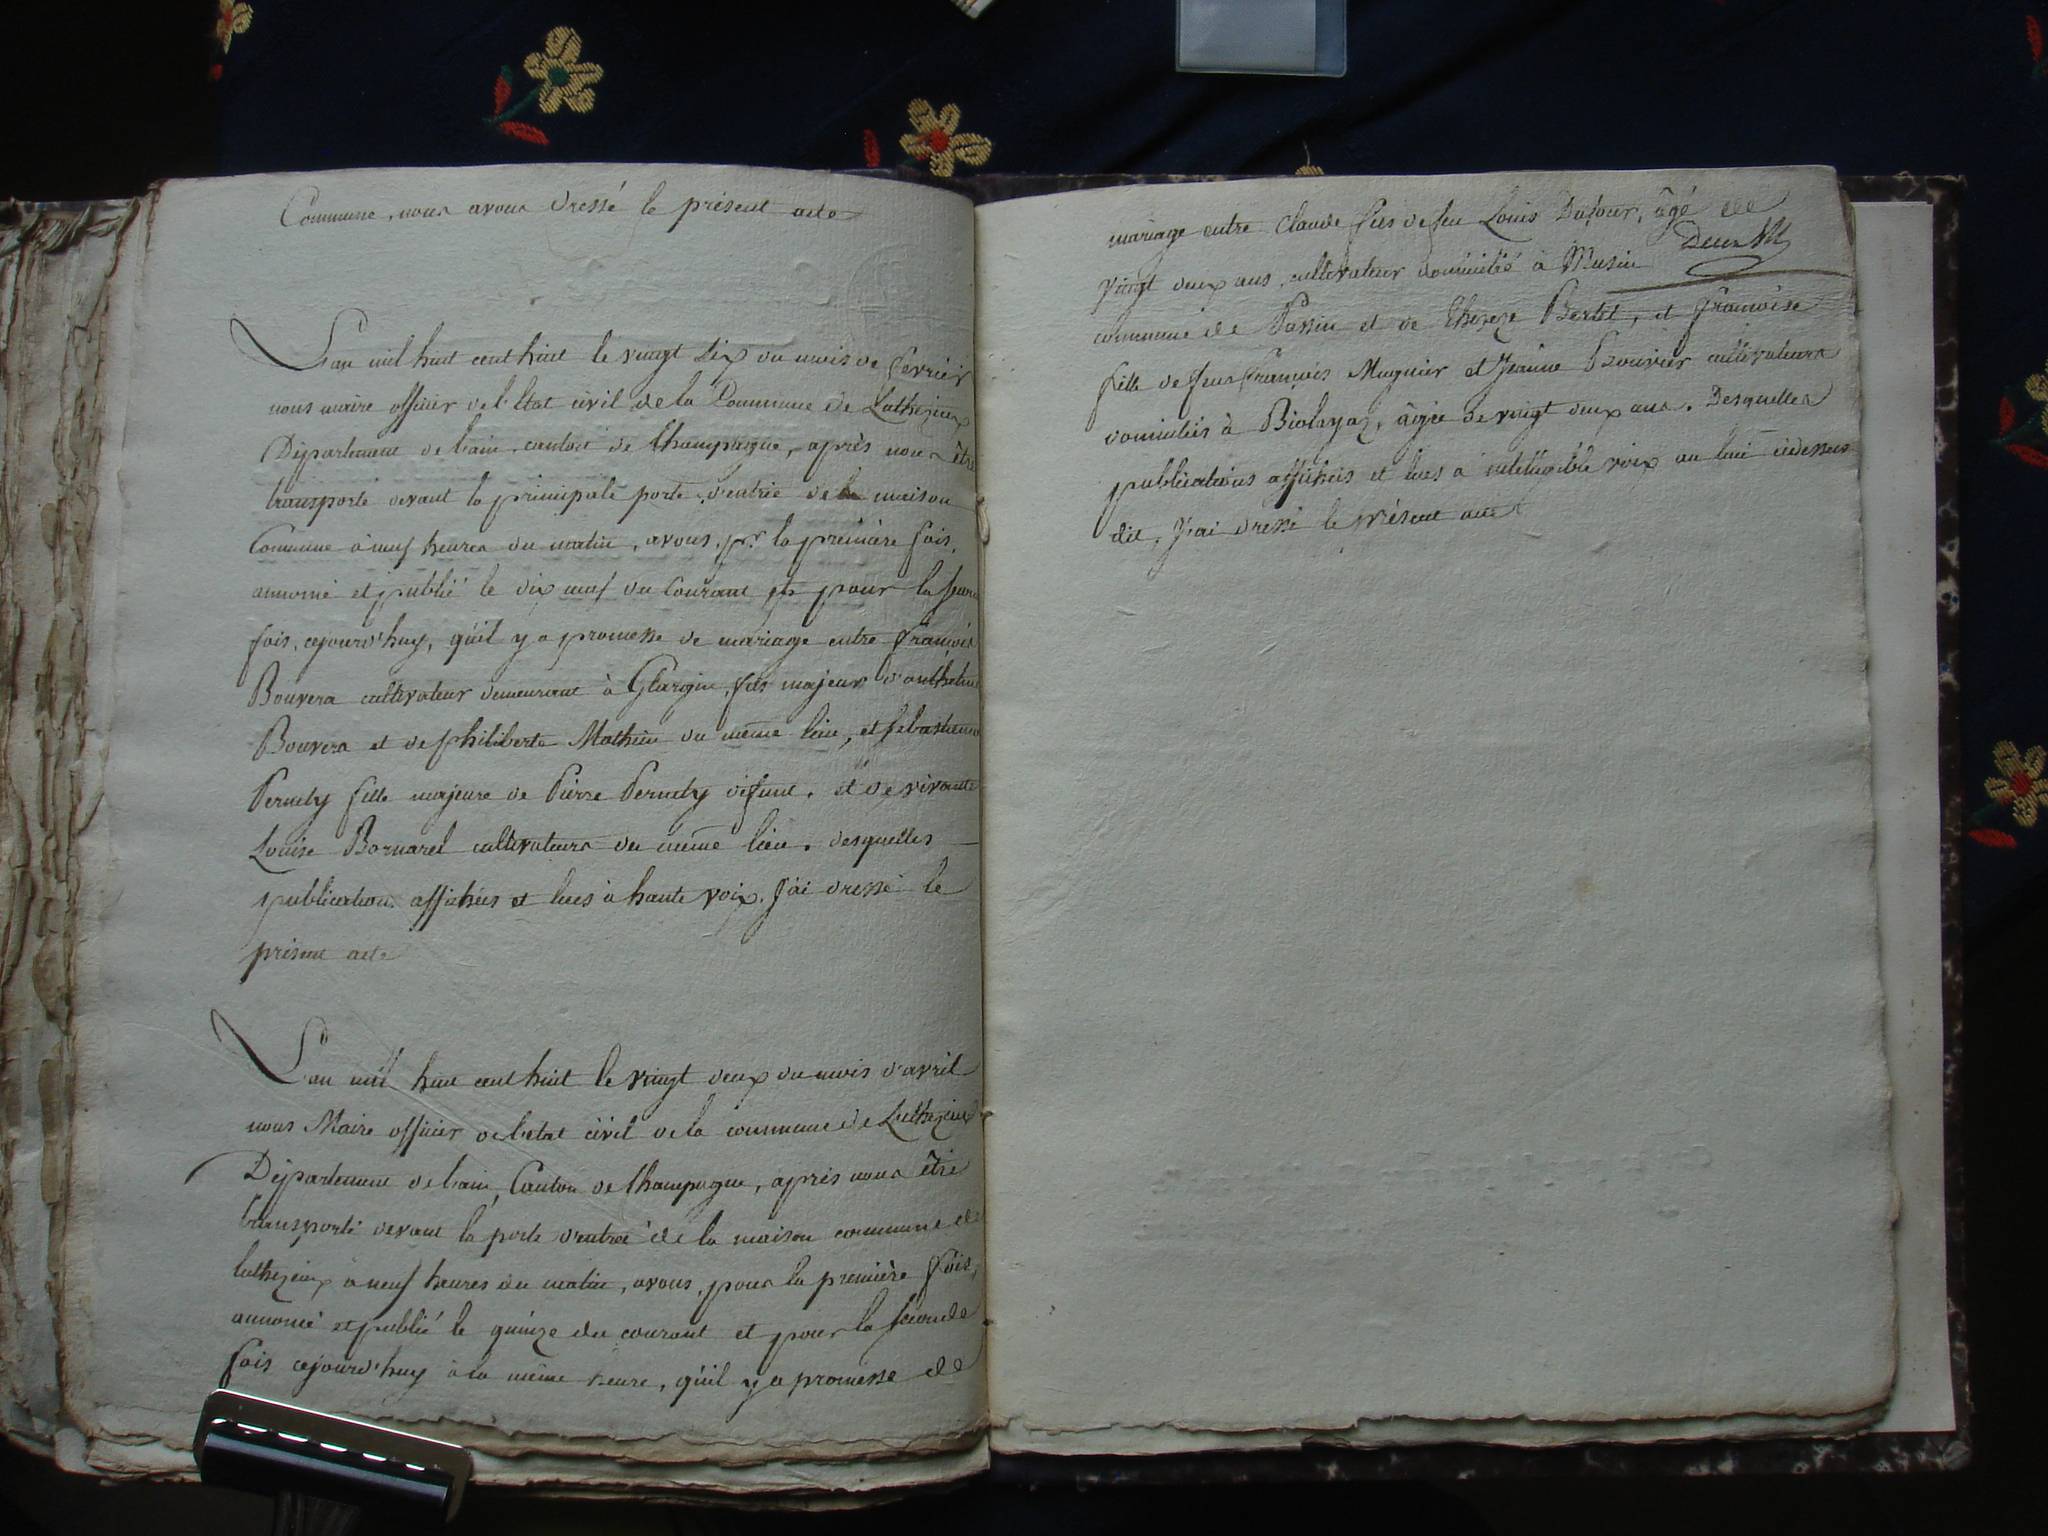 Commune, nous avons dressé le présent acte
L'an mil huit cent huit le vingt six du mois de fevrier
nous maire officier de l'Etat civil de la Commune de Luthezieux
Département de l'ain, canton de Champagne, après nous être
transporté devant la principale porte d'entrée de la maison
Commune à neuf heures du matin, avons, pr. la première fois,
annoncé et publié le dix neuf du Courant et pour la
fois, cejourd'huy, qu'il y a promesse de mariage entre françois
Bouvera cultivateur demeurant à Glargin, fils majeur d'anthelme
Bouvera et de philiberte Mathieu du même lieu, et
Pernety fille majeure de Pierre Pernety défunt, et de vivante
Louise Bornarel cultivateurs du même lieu. desquelles
publications affichées et lues à haute voix. J'ai dressé le
présent acte
L'an mil huit cent huit le vingt deux du mois d'avril
nous Maire officier de l'etat civil de la commune de Luthezieux
Département de l'ain, Canton de Champagne, après nous être
transporté devant la porte d'entrée de la maison commune de
luthezieux à neuf heures du matin, avons, pour la première fois,
annoncé et publié le quinze du courant et pour la seconde
fois cejourd'huy à la même heure, qu'il y a promesse de
mariage entre Claude fils de feu Louis Dufour, âgé de
vingt deux ans, cultivateur domicilié à Musin
commune de Passin et de Thereze Bertet, et françoise
fille de feus françois Mugnier et Jeanne Bouvier cultivateurs
domiciliés à Biolayaz, âgée de vingt deux ans. Desquelles
publications affichées et lues à intelligible voix au lieu cidessus
dit, J'ai dressé le présent acte